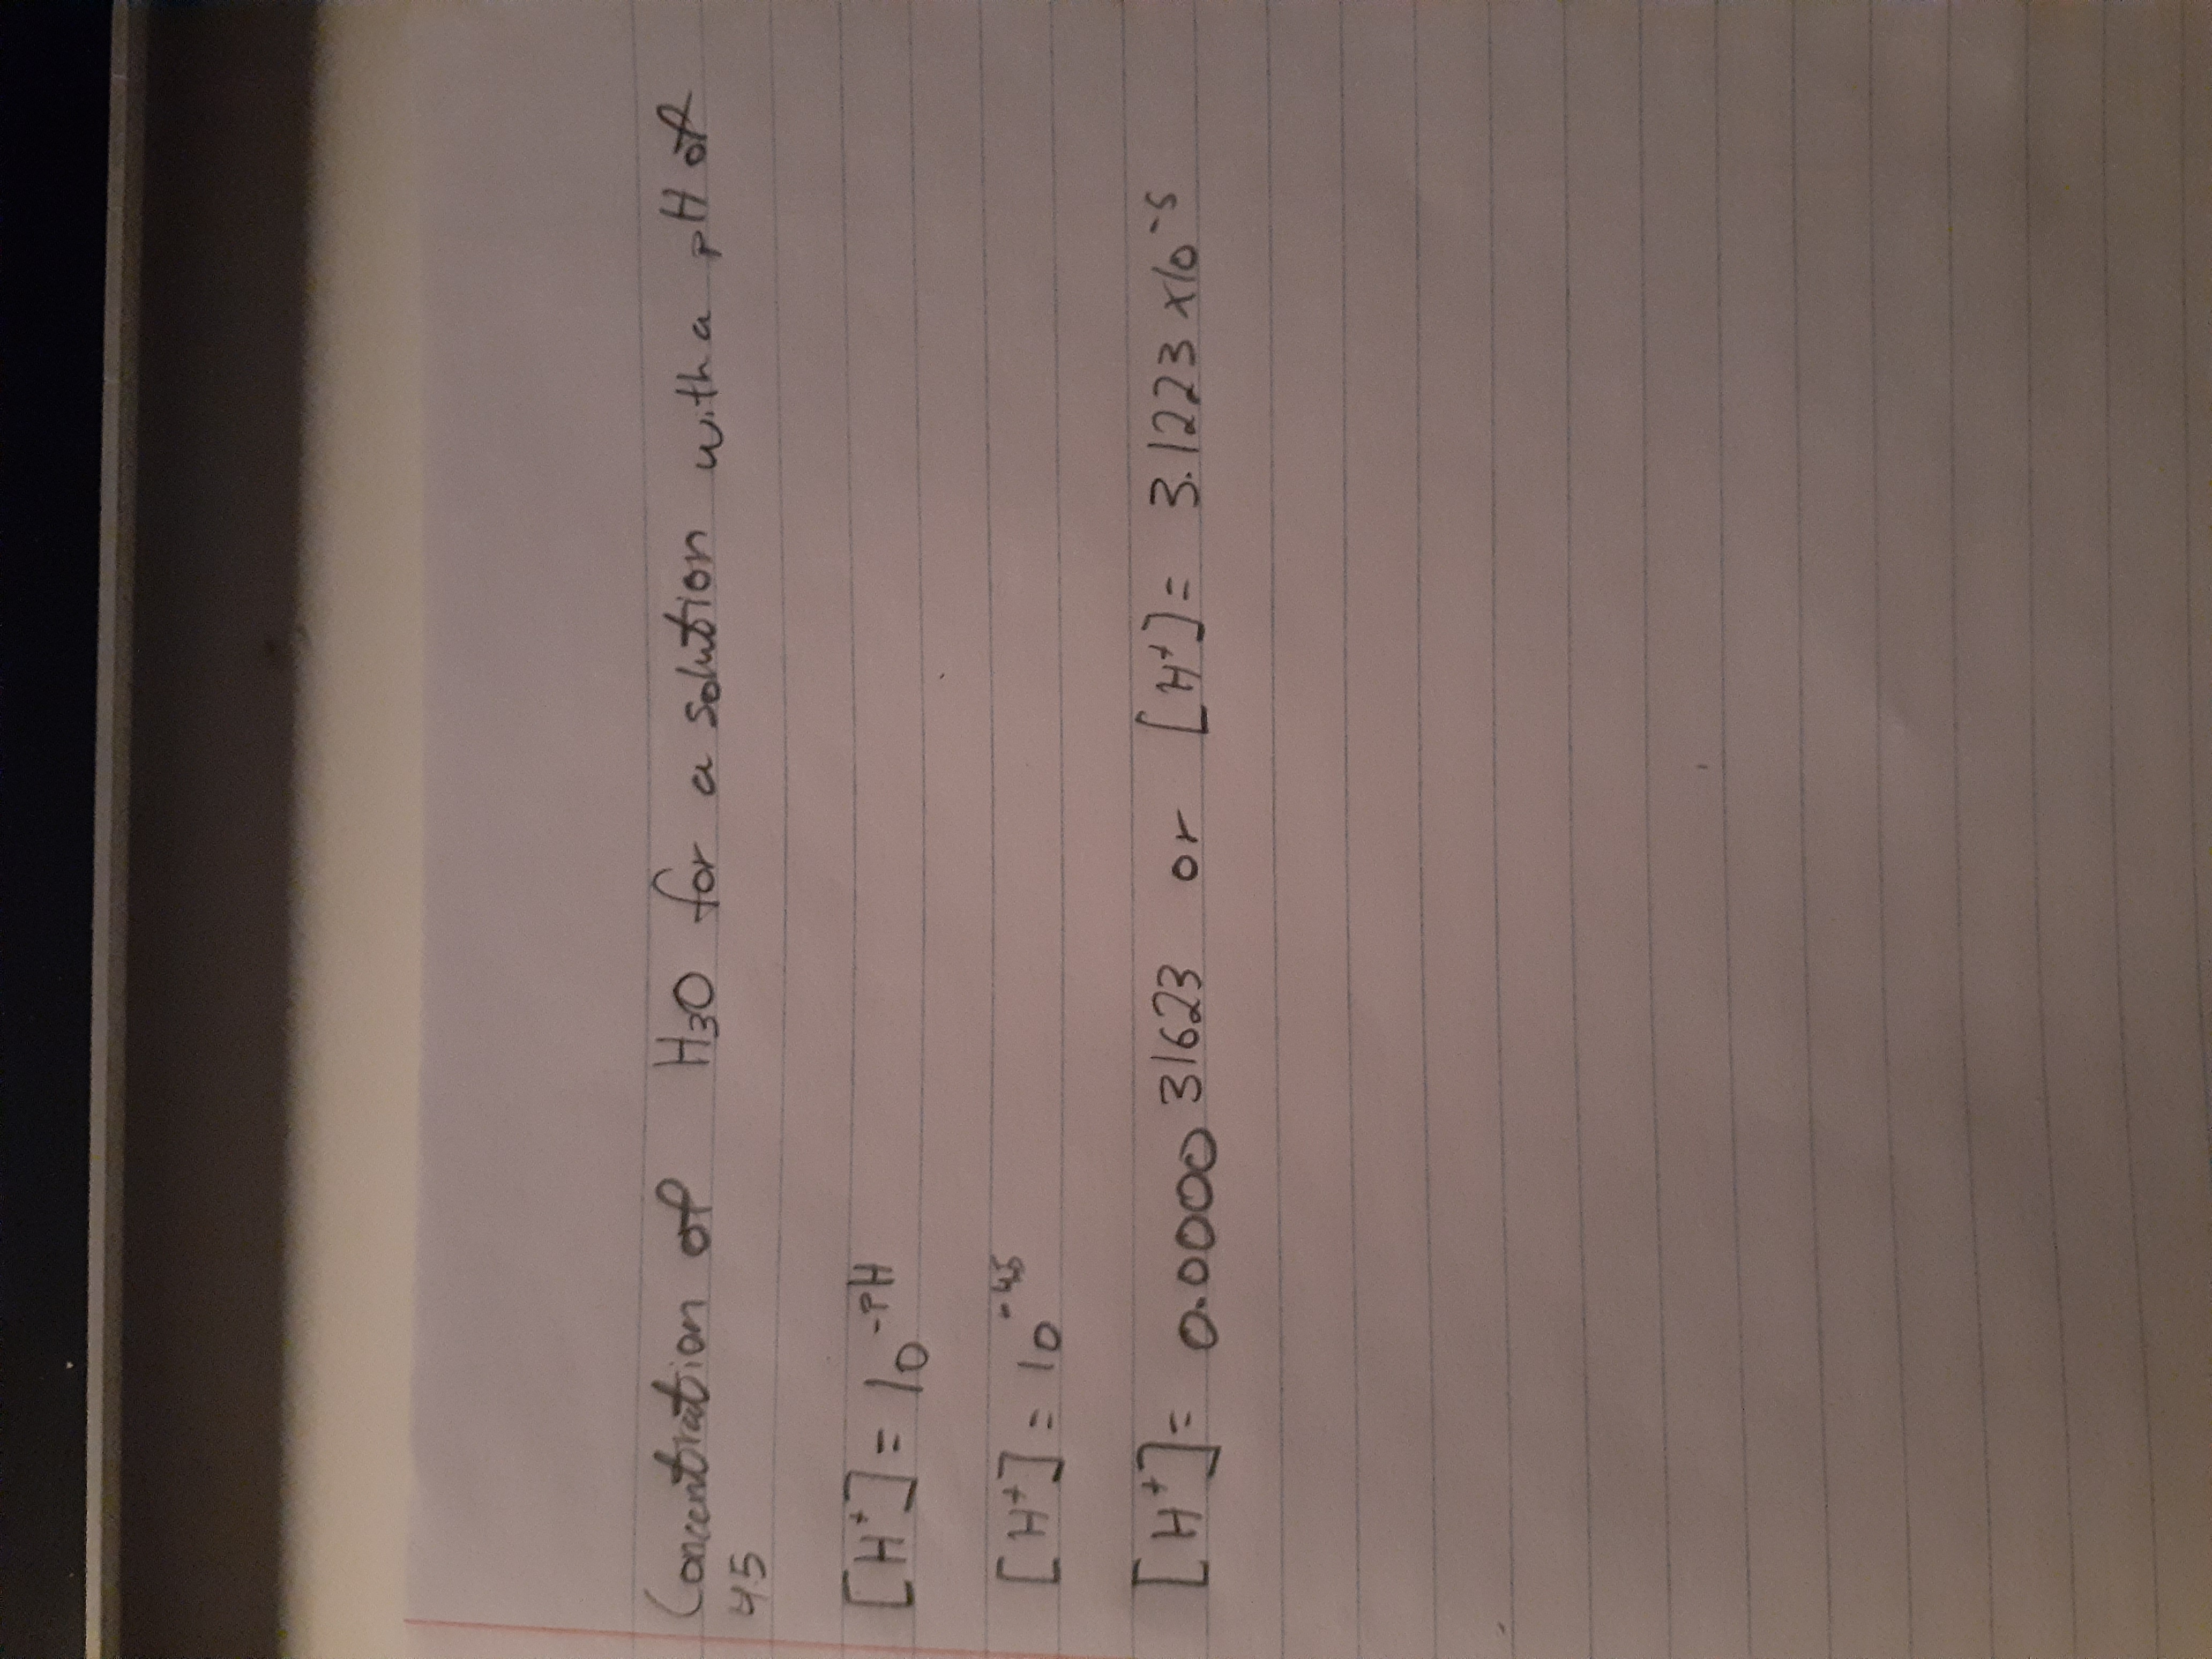 Concentration of H₃O for a solution with a pH of
45
[H⁺] = 10⁻ᵖᴴ
[H⁺] = 10⁻⁴⁵
[H⁺] = 0.000031623 or [H⁺] = 3.1223 x10⁻⁵